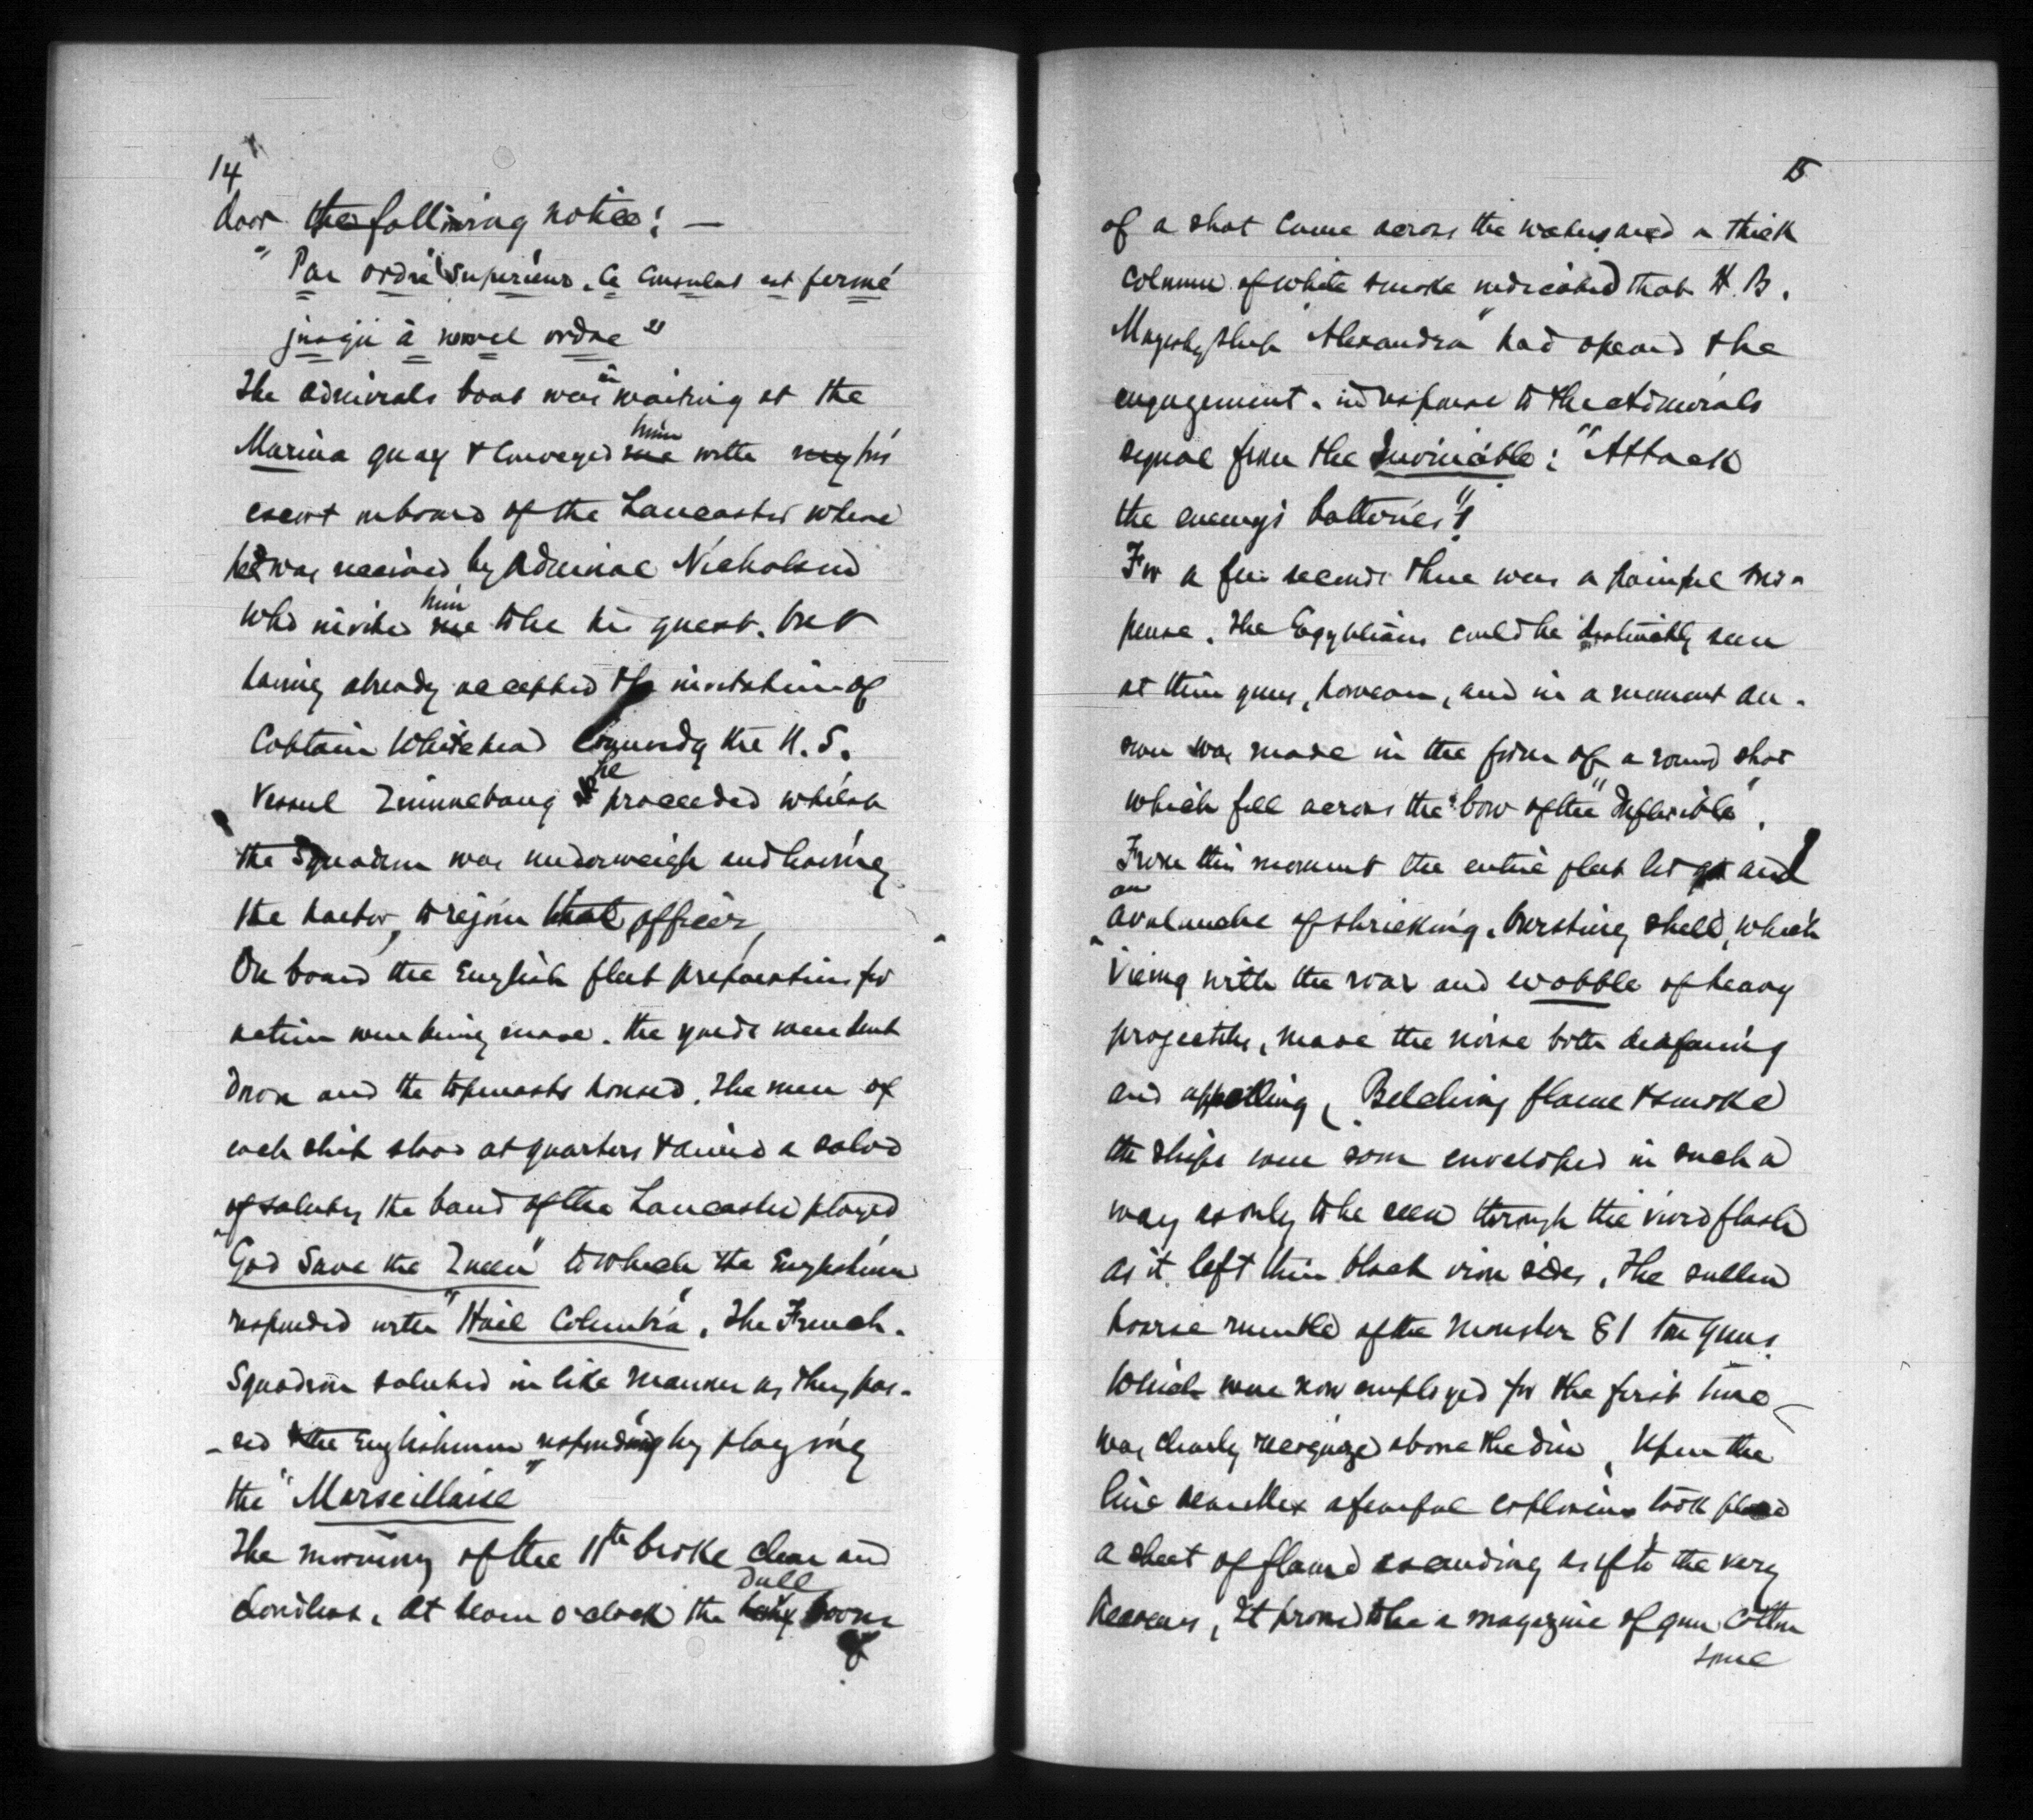 14
door the following notice: —
"Par ordre Superieur. Ce Consulat est fermé
jusqu à nouvel ordre"
The Admirals boat was in waiting at the
Marina quay & conveyed me him with my his
escort onboard of the Lancaster where
he was received by Admiral Nicholson
who invited me him to be his guest. but
having already accepted the invitation of
Captain Whitehead Comndg the U.S.
Vessel Quinnebaug he proceeded whilst
the Squadron was underweigh and leaving
the harbor, to rejoin that officer,
On board the English fleet preparations for
action were being made. the yards were sent
down and the topmasts housed. The men of
each ship stood at quarters & amid a salvo
of salutes the band of the Lancaster played
"God Save the Queen" to which the Englishmen
responded with "Hail Columbia". The French.
Squadron saluted in like manner as they pas-
-sed the Englishmen responding by playing
the "Marseillaise"
The morning of the 11th broke clear and
cloudless. At seven o'clock the heavy dull boom
of
15
of a shot came across the waters and a thick
column of white smoke indicated that H. B.
Majestys ship "Alexandra" had opened the
engagement. in response to the Admirals
signal from the Invincible: "Attack
the enemys batteries"!
For a few seconds there was a painful sus-
pense. The Egyptians could be distinctly seen
at their guns, however, and in a moment an-
swer was made in the form of a round shot
which fell across the bow of the "Inflexible".
From this moment the entire fleet let go and
an avalanche of shrieking, bursting shell, which
vieing with the roar and wobble of heavy
projectiles, made the noise both deafening
and appalling. Belching flame & smoke
the ships were soon enveloped in such a
way as only to be seen through the vivid flash
as it left their black iron sides. The sullen
hoarse rumble of the monster 81 ton guns
which were now employed for the first time
was clearly recognized above the din. Upon the
line a fearful explosion took place
a sheet of flame ascending as if to the very
heavens, It proved to be a magazine of gun cotton
some